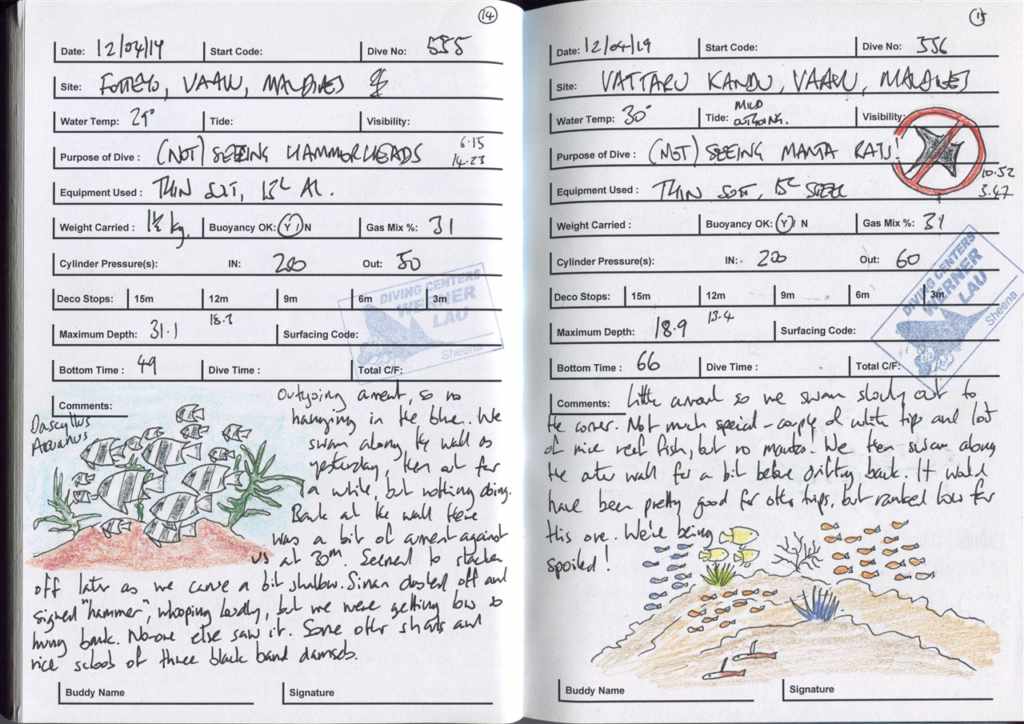 14
Date: 12/04/19 Start Code: Dive No: 555
Site: FOTTEYO, VAAVU, MALDIVES
Water Temp: 29° Tide: Visibility:
Purpose of Dive: (NOT) SEEING HAMMERHEADS 6.15
14.23
Equipment Used: THIN SUIT, 12L AL.
Weight Carried: 1½ kg. Buoyancy OK: Y / N Gas Mix %: 31
Cylinder Pressure(s): IN: 200 Out: 50
Deco Stops: 15m 12m 9m 6m 3m
Maximum Depth: 31.1 18.7 Surfacing Code:
Bottom Time: 49 Dive Time: Total C/F:
DIVING CENTERS
WERNER
LAU
Sheena
Comments:
Dascyllus
Aruanus
Outgoing current, so no
hanging in the blue. We
swam along the wall as
yesterday, then out for
a while, but nothing doing.
Back at the wall there
was a bit of current against
us at 30m. Seemed to slacken
off later as we came a bit shallow. Sinan dashed off and
signed "hammer", whooping loudly, but we were getting low so
hung back. No-one else saw it. Some other sharks and
nice school of three black band damsels.
Buddy Name Signature
15
Date: 12/04/19 Start Code: Dive No: 556
Site: VATTARU KANDU, VAAVU, MALDIVES
Water Temp: 30° Tide: MILD OUTGOING. Visibility:
Purpose of Dive: (NOT) SEEING MANTA RAYS!
10.52
3.47
Equipment Used: THIN SUIT, 15L STEEL
Weight Carried: Buoyancy OK: Y / N Gas Mix %: 31
Cylinder Pressure(s): IN: 200 Out: 60
Deco Stops: 15m 12m 9m 6m 3m
Maximum Depth: 18.9 13.4 Surfacing Code:
Bottom Time: 66 Dive Time: Total C/F:
DIVING CENTERS
WERNER
LAU
Sheena
Comments: Little current so we swam slowly out to
the corner. Not much special - couple of white tip and lots
of nice reef fish, but no mantas! We then swam along
the outer wall for a bit before drifting back. It would
have been pretty good for other trips, but ranked low for
this one. We're being
spoiled!
Buddy Name Signature